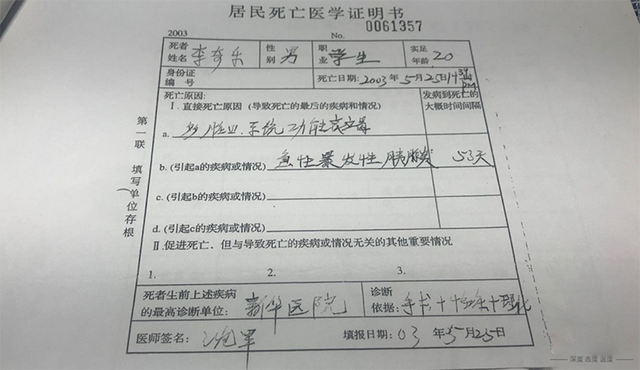 居民死亡医学证明书
2003 No. 0061357
死者姓名 李奇乐 性别 男 职业 学生 实足年龄 20
身份证编号 死亡日期:2003年5月25日19
死亡原因: 发病到死亡的大概时间间隔
Ⅰ.直接死亡原因(导致死亡的最后的疾病和情况)
a. 多脏器系统功能衰竭
b.(引起a的疾病或情况) 急性暴发性胰腺炎 53天
c.(引起b的疾病或情况)
d.(引起c的疾病或情况)
Ⅱ.促进死亡,但与导致死亡的疾病或情况无关的其他重要情况
1. 2. 3.
死者生前上述疾病的最高诊断单位: 新华医院 诊断依据: 手术+临床+理化
医师签名: 军 填报日期:03年5月25日
第一联 填写单位存根